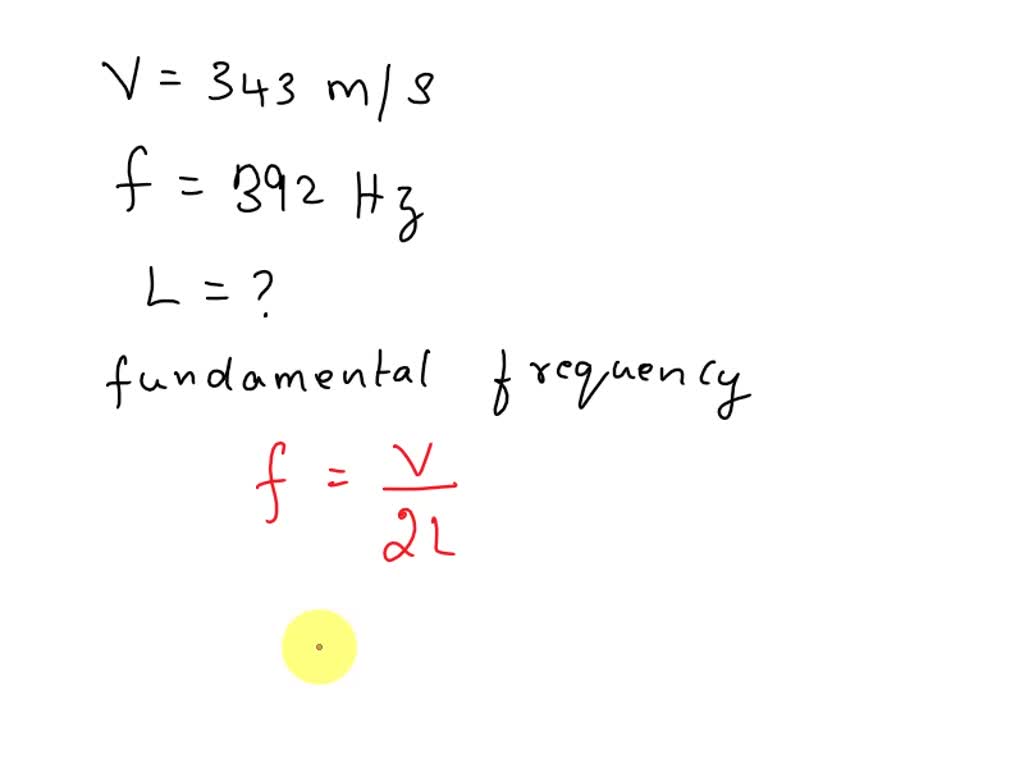 V = 343 m/s
f = 392 Hz
L = ?
fundamental frequency
f = V / 2L